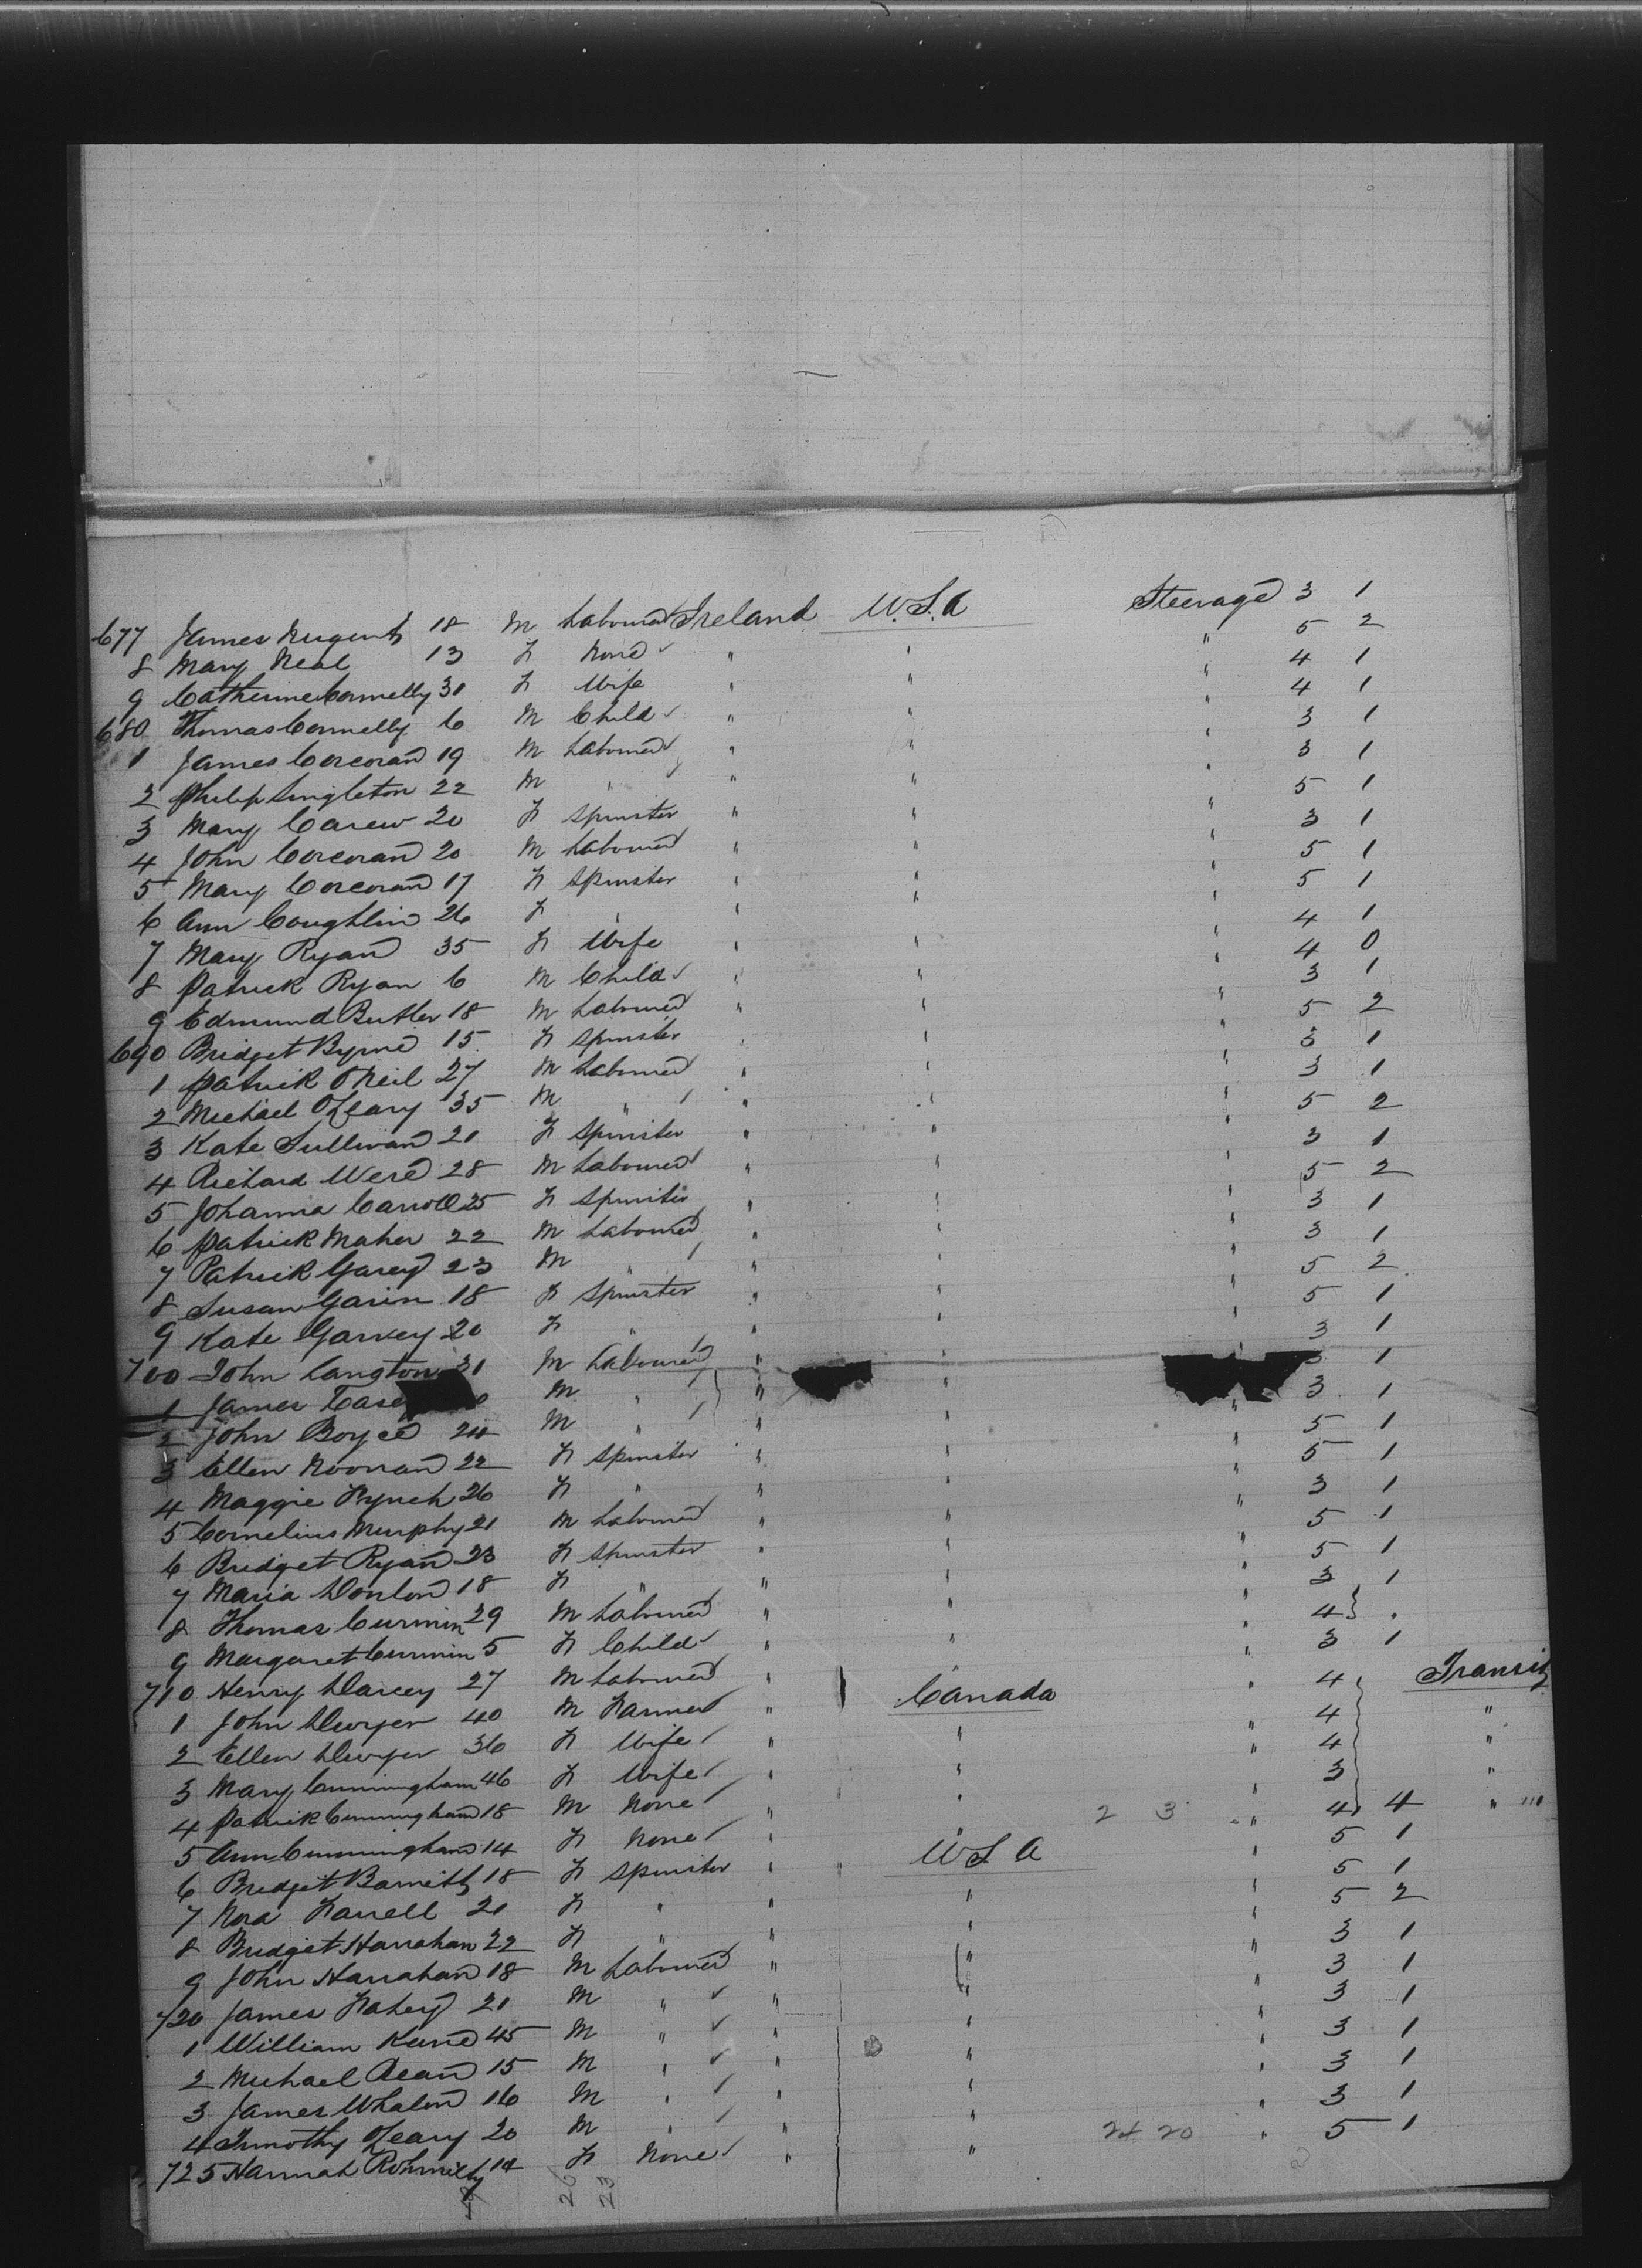 677 James Nugent 18 M Labourer Ireland U.S.A Steerage 3 1
8 Mary Neal 13 F None " " " 5 2
9 Catherine Connelly 30 F Wife " " " 4 1
680 Thomas Connelly 6 M Child " " " 4 1
1 James Corcoran 19 M Labourer " " " 3 1
2 Philip Singleton 22 M " " " " 3 1
3 Mary Carew 20 F Spinster " " " 5 1
4 John Corcoran 20 M Labourer " " " 3 1
5 Mary Corcoran 17 F Spinster " " " 5 1
6 Ann Coughlin 26 F " " " " 5 1
7 Mary Ryan 35 F Wife " " " 4 1
8 Patrick Ryan 6 M Child " " " 4 0
9 Edmund Butler 18 M Labourer " " " 3 1
690 Bridget Byrne 15 F Spinster " " " 5 2
1 Patrick O'Neil 27 M Labourer " " " 3 1
2 Michael O'Leary 35 M " " " " 3 1
3 Kate Sullivan 21 F Spinster " " " 5 2
4 Richard Were 28 M Labourer " " " 3 1
5 Johanna Carroll 25 F Spinster " " " 5 2
6 Patrick Maher 22 M Labourer " " " 3 1
7 Patrick Garey 23 M " " " " 3 1
8 Susan Gavin 18 F Spinster " " " 5 2
9 Kate Garvey 20 F " " " " 5 1
700 John Langton 31 M Labourer " " " 3 1
1 James M " " " 3 1
2 John Boyce 24 M " " " " 3 1
3 Ellen Noonan 22 F Spinster " " " 5 1
4 Maggie Lynch 26 F " " " " 5 1
5 Cornelius Murphy 21 M Labourer " " " 3 1
6 Bridget Ryan 23 F Spinster " " " 5 1
7 Maria Donlon 18 F " " " " 5 1
8 Thomas Curmin 29 M Labourer " " " 3 1
9 Margaret Curmin 5 F Child " " " 4
710 Henry Darcey 27 M Labourer " " " 3 1
1 John Dwyer 40 M Farmer " Canada " 4 Transit
2 Ellen Dwyer 36 F Wife " " " 4 "
3 Mary Cunningham 46 F Wife " " " 4 "
4 Patrick Cunningham 18 M None " " " 3 "
5 Ann Cunningham 14 F None " " 2 3 " 4 4 "
6 Bridget 18 F Spinster " U S A " 5 1
7 Nora Farrell 21 F " " " " 5 1
8 Bridget Hanrahan 22 F " " " " 5 2
9 John Hanrahan 18 M Labourer " " " 3 1
720 James Fahey 21 M " " " " 3 1
1 William Kune 45 M " " " " 3 1
2 Michael 15 M " " " " 3 1
3 James Whalen 16 M " " " " 3 1
4 Timothy O'Leary 20 M " " " " 3 1
725 Hannah 14 F None " " 24 20 " 5 1
26 23